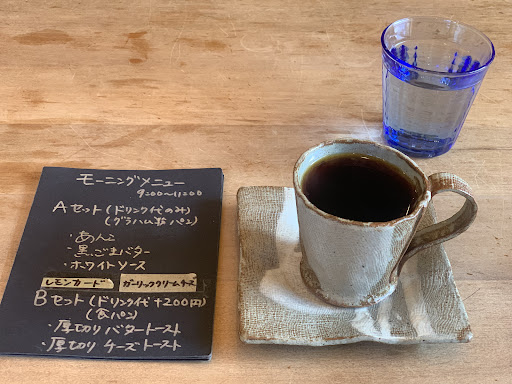 モーニングメニュー
9:00〜11:00
Aセット(ドリンク代のみ)
(グラハム パン)
・あんこ
・黒ごまバター
・ホワイトソース
レモンカード ガーリッククリームチーズ
Bセット(ドリンク代+200円)
(食パン)
・厚切り バタートースト
・厚切り チーズトースト